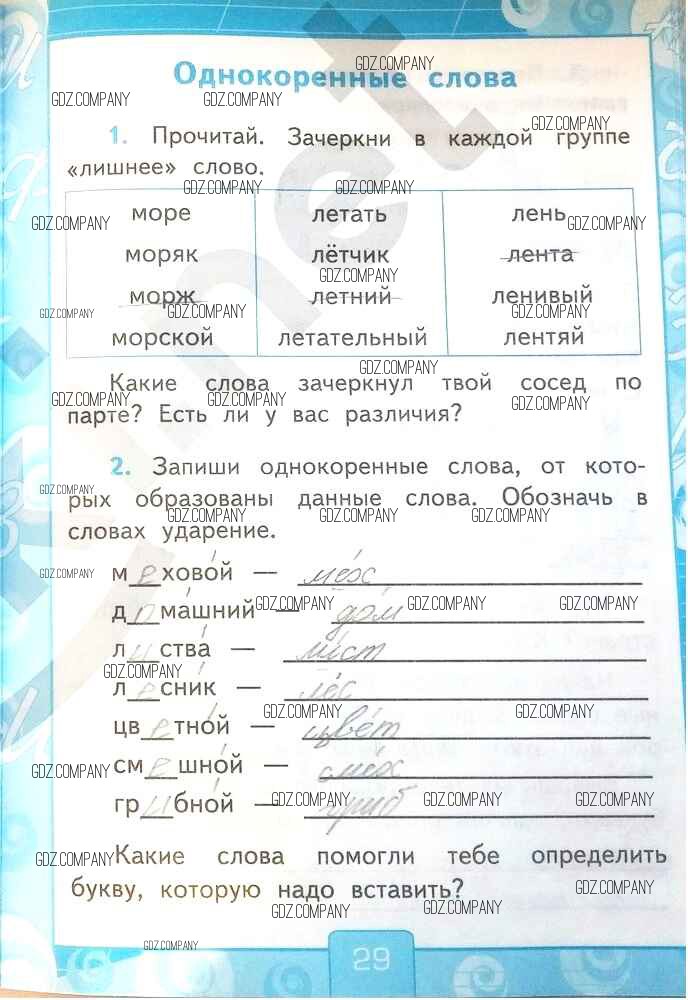 Однокоренные слова
1. Прочитай. Зачеркни в каждой группе
«лишнее» слово.
море летать лень
моряк лётчик лента
морж летний ленивый
морской летательный лентяй
Какие слова зачеркнул твой сосед по
парте? Есть ли у вас различия?
2. Запиши однокоренные слова, от кото-
рых образованы данные слова. Обозначь в
словах ударение.
меховой — мех
домашний — дом
листва — лист
лесник — лес
цветной — цвет
смешной — смех
грибной — гриб
Какие слова помогли тебе определить
букву, которую надо вставить?
29
GDZ.COMPANY